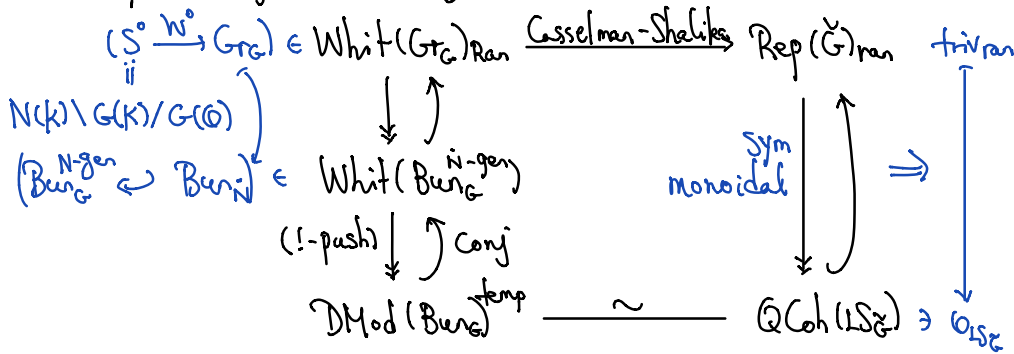 (S° W° → Gr_G) ∈ Whit(Gr_G)_Ran Casselman-Shalika → Rep(Ǧ)_ran triv_ran
N(K)\G(K)/G(O)
(Bun_G^{N-gen} ↩ Bun_N) ∈ Whit(Bun_G^{N-gen}) sym monoidal ⇒
(!-push) Conj
DMod(Bun_G)^temp ~ QCoh(LS_Ǧ) ∋ O_{LS_Ǧ}